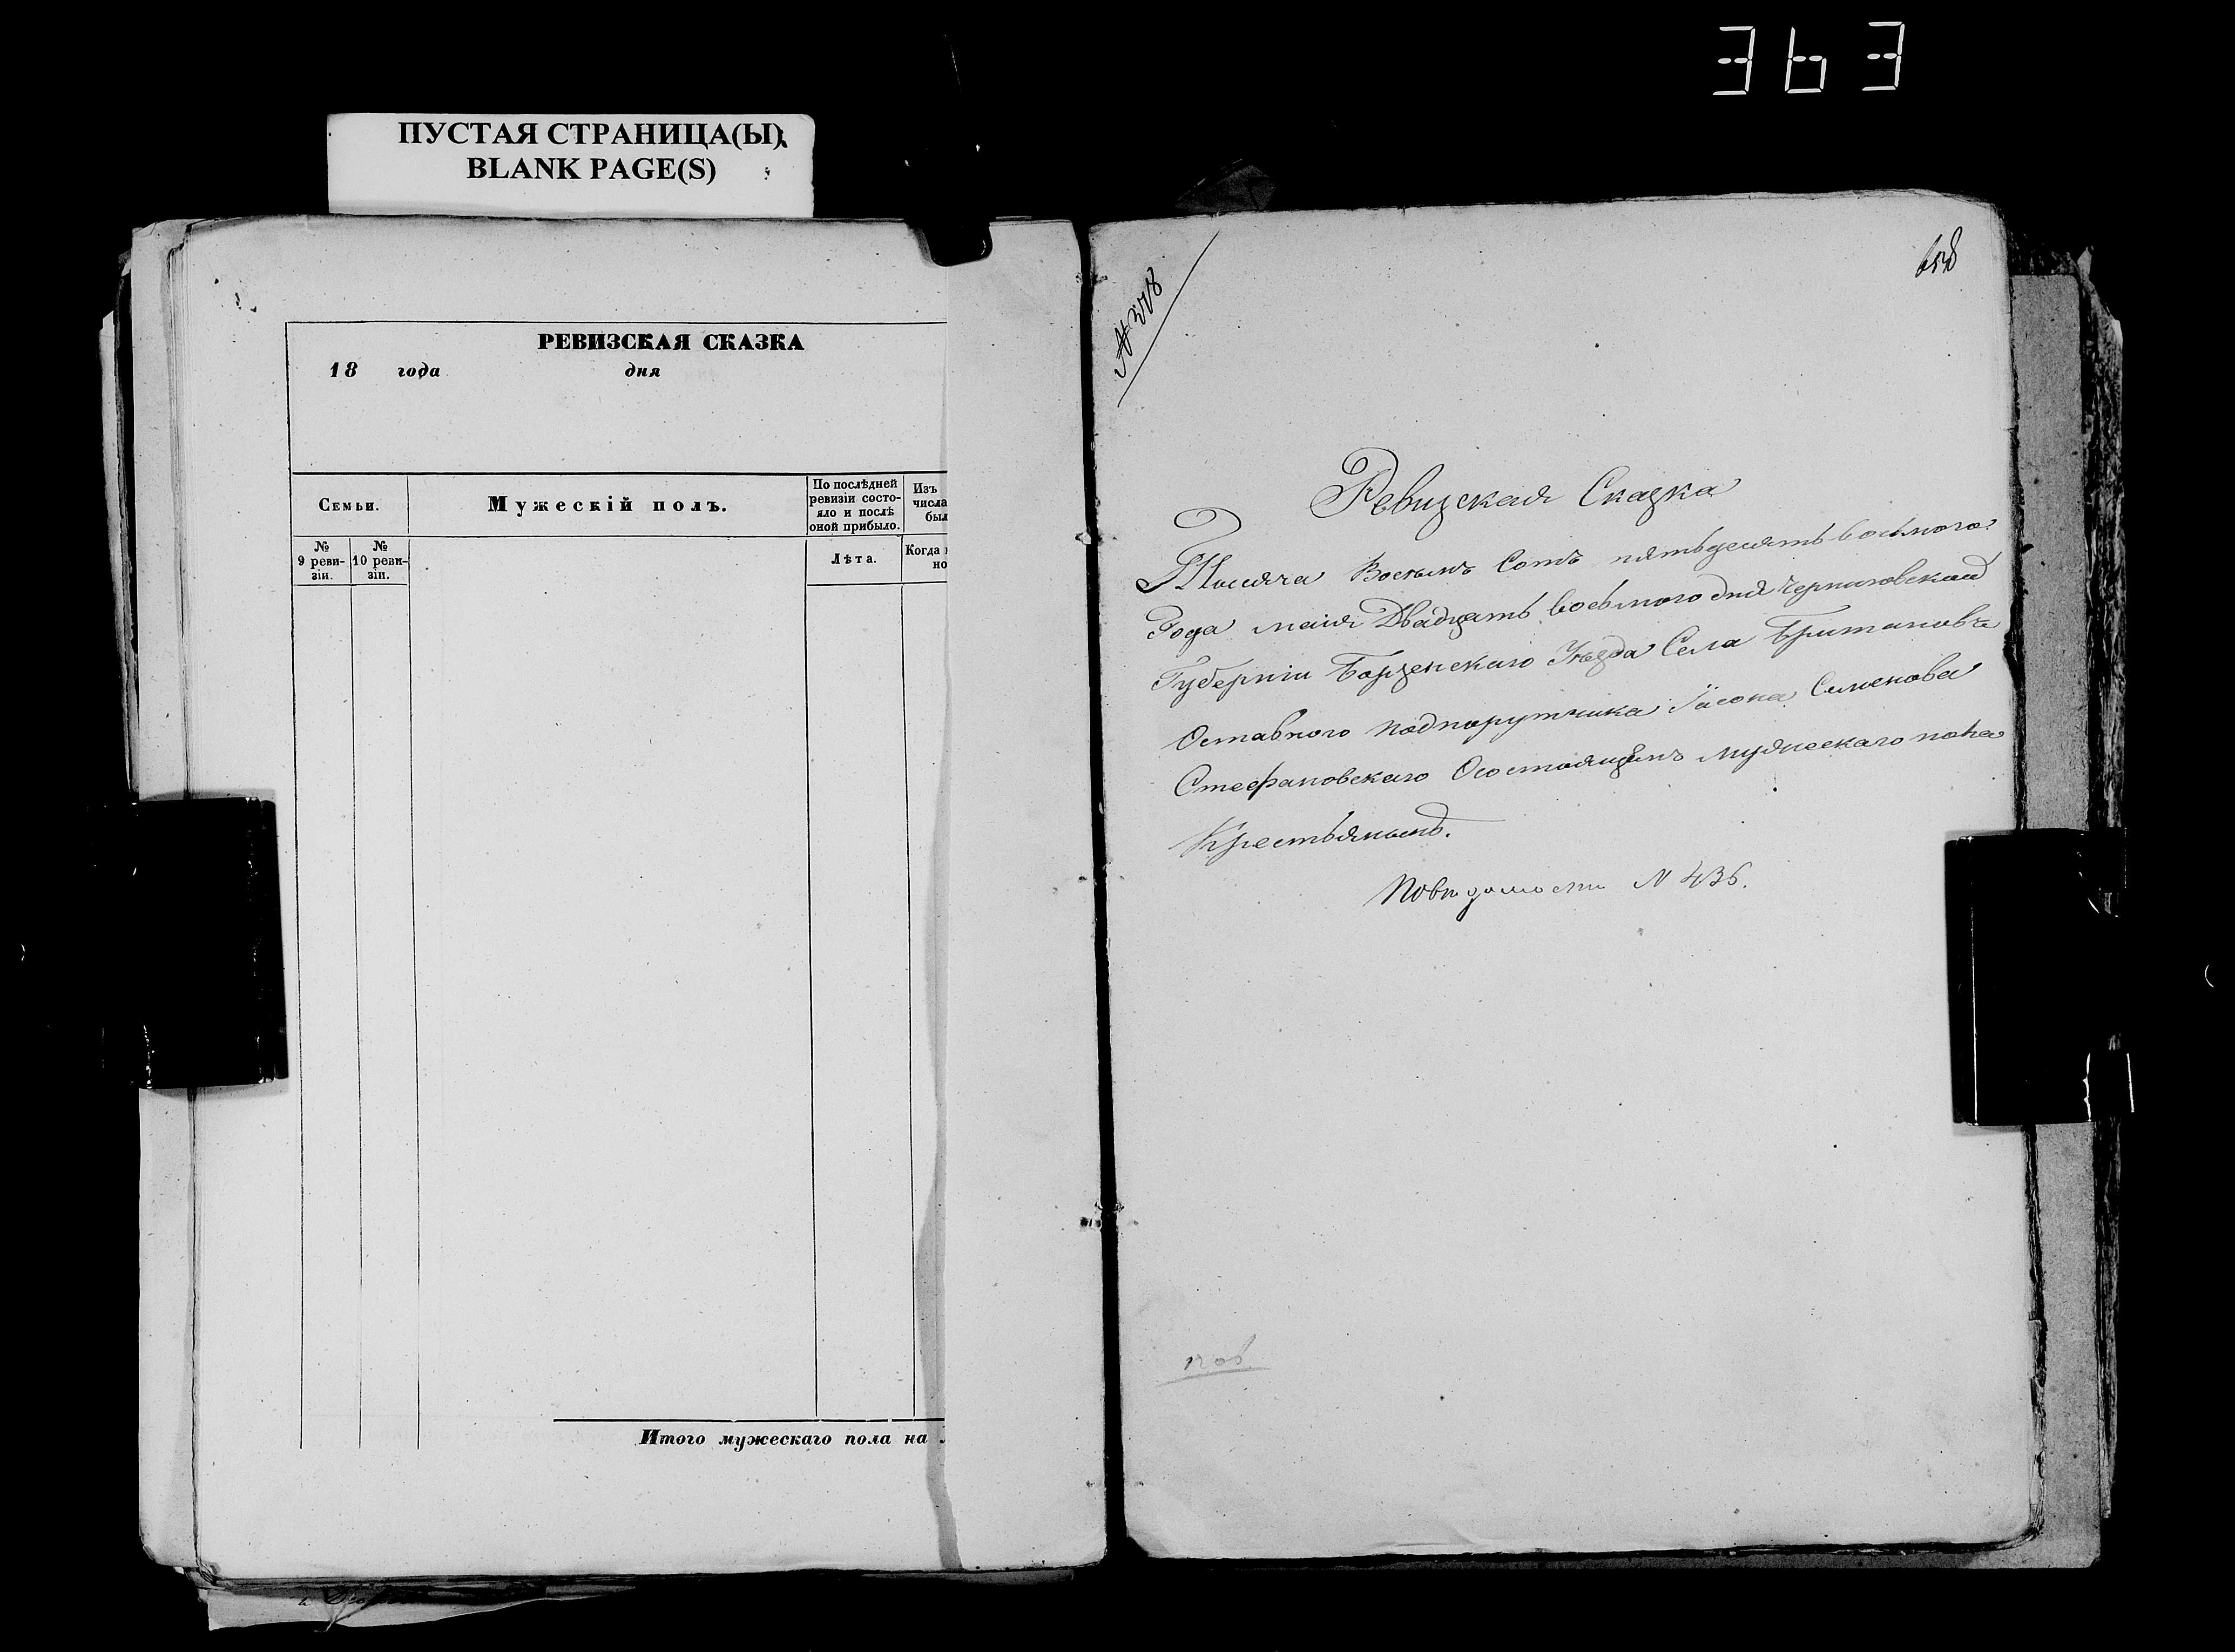 363
ПУСТАЯ СТРАНИЦА(Ы)
BLANK PAGE(S)
РЕВИЗСКАЯ СКАЗКА
18 года дня
Семьи.
Мужескій полъ.
По послѣдней
ревизіи состо-
яло и послѣ
оной прибыло.
Изъ
числа
был
№
9 реви-
зіи.
№
10 реви-
зіи.
Лѣта.
Когда
но
Итого мужескаго пола на
658
Ревизская Сказка
Тысяча Восемъ Сотъ пятьдесятъ восьмого
Года маія Двадцать восьмого дня Черниговской
Губерніи Борзенскаго Уѣзда Села Британовъ
Оставного подпорутчика Іасона Семенова
Стефановскаго Осостоящемъ мужескаго пола
Крестьянинѣ.
По вѣдомости N 436.